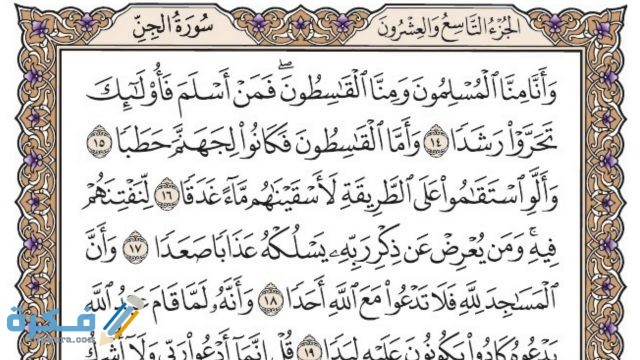 سُورَةُ الجِنِّ
الجُزْءُ التَّاسِعُ وَالعِشْرُونَ
وَأَنَّا مِنَّا ٱلْمُسْلِمُونَ وَمِنَّا ٱلْقَٰسِطُونَۖ فَمَنْ أَسْلَمَ فَأُو۟لَٰٓئِكَ
تَحَرَّوْا۟ رَشَدًا ١٤ وَأَمَّا ٱلْقَٰسِطُونَ فَكَانُوا۟ لِجَهَنَّمَ حَطَبًا ١٥
وَأَلَّوِ ٱسْتَقَٰمُوا۟ عَلَى ٱلطَّرِيقَةِ لَأَسْقَيْنَٰهُم مَّآءً غَدَقًا ١٦ لِّنَفْتِنَهُمْ
فِيهِۚ وَمَن يُعْرِضْ عَن ذِكْرِ رَبِّهِۦ يَسْلُكْهُ عَذَابًا صَعَدًا ١٧ وَأَنَّ
ٱلْمَسَٰجِدَ لِلَّهِ فَلَا تَدْعُوا۟ مَعَ ٱللَّهِ أَحَدًا ١٨ وَأَنَّهُۥ لَمَّا قَامَ عَبْدُ ٱللَّهِ
يَدْعُوهُ كَادُوا۟ يَكُونُونَ عَلَيْهِ لِبَدًا ١٩ قُلْ إِنَّمَآ أَدْعُوا۟ رَبِّى وَلَآ أُشْرِكُ
فكرة